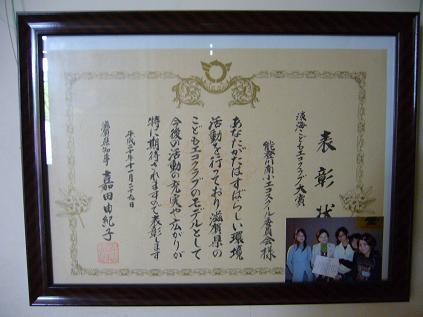 表彰状
淡海こどもエコクラブ大賞
能登川南小エコスクール委員会様
あなたがたはすばらしい環境
活動を行っており滋賀県の
こどもエコクラブのモデルとして
今後の活動の充実や広がりが
特に期待されますので表彰します
平成二十年十一月二十九日
滋賀県知事 嘉田由紀子